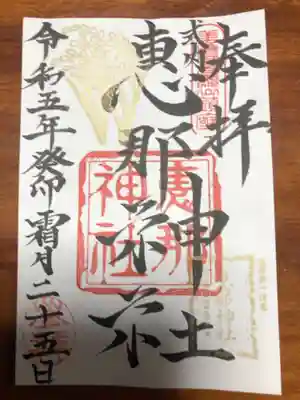 奉拝
式内
恵那神社
恵那
神社
令和五年癸卯霜月二十五日